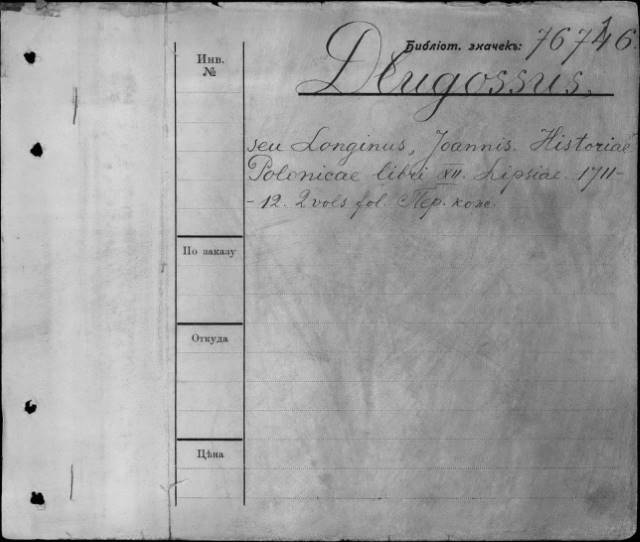 Библіот. значекъ: 76746
Инв.
№
Dlugossus.
seu Longinus, Joannis. Historiae
Polonicae libri XII. Lipsiae. 1711-
-12. 2 vols fol. Пер. кож.
По заказу
Откуда
Цѣна